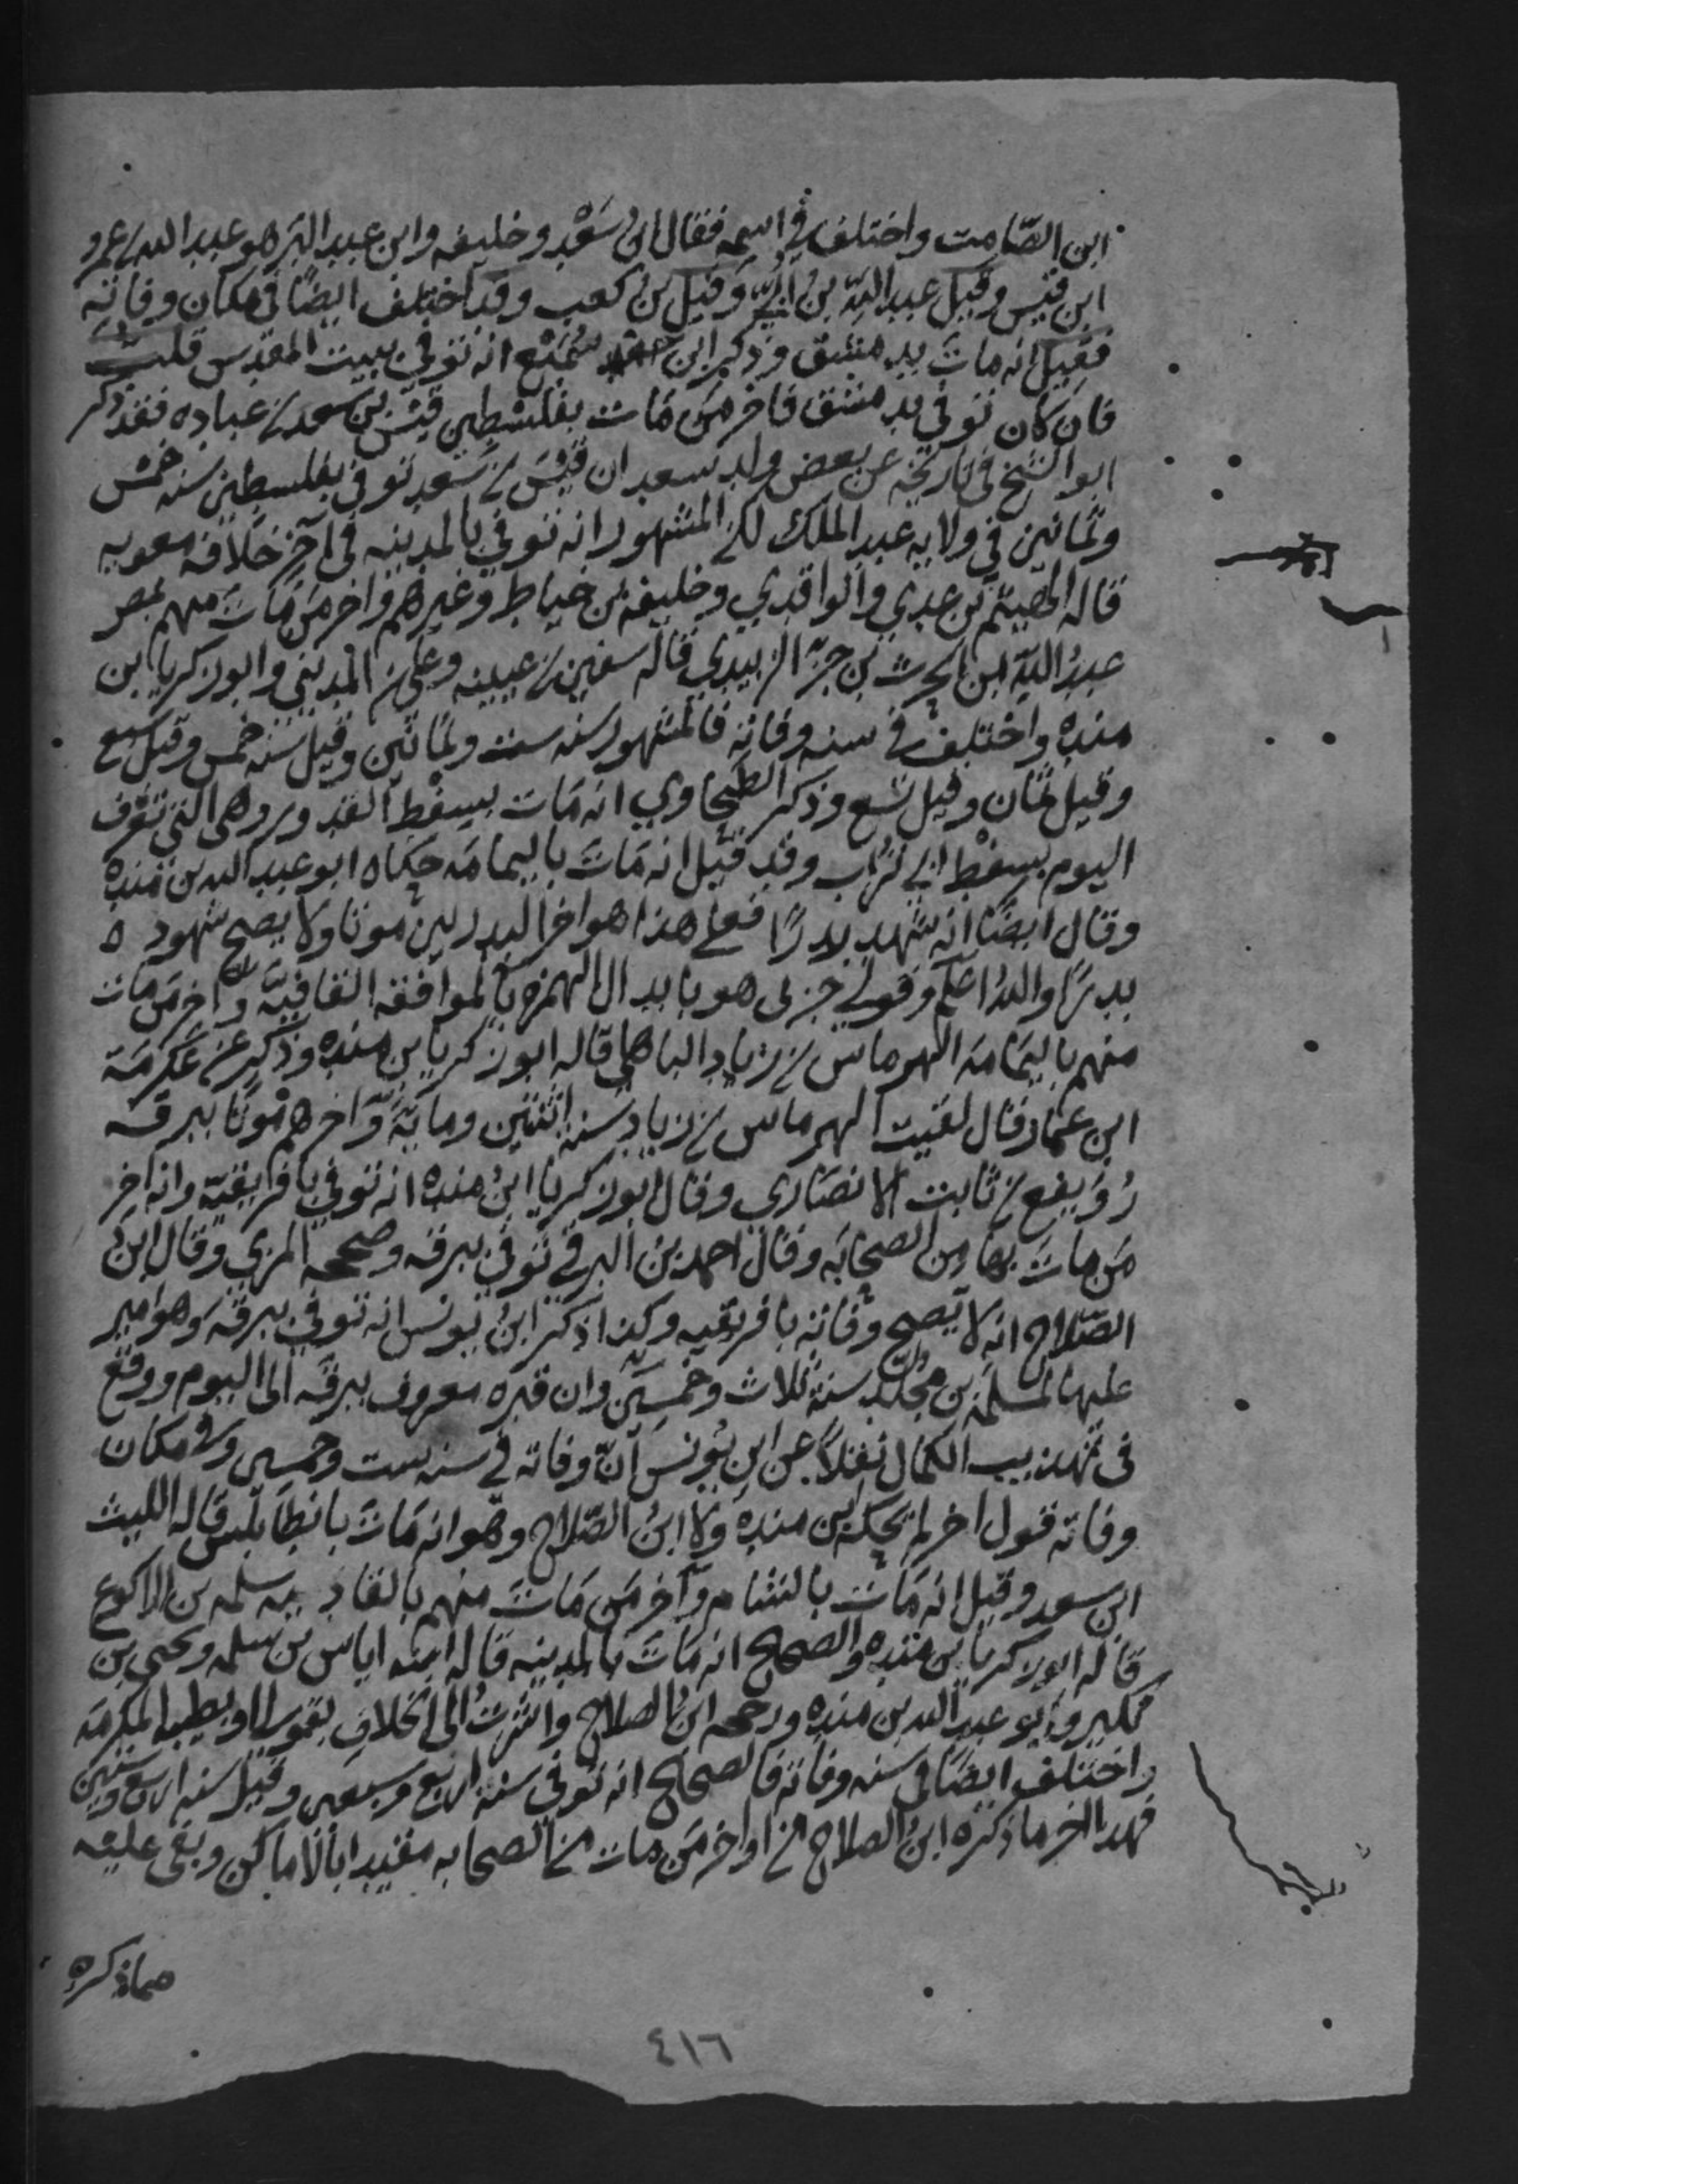 ابن الصّامت واختلف في اسمه فقال ابن سَعْد وخليفه وابن عبد البَر هو عبد الله بن عمرو
ابن قيس وقيل عبد الله بن اُبَيّ وقيل بن كعب وقد اختلف ايضًا في مكان وفاته
فقيل انه ماتَ بدمشق وذكر ابن سُمَيْع انه توفي ببيت المقدس قلت
فان كان توفي بدمشق فاخر مَن مَات بفلسْطين قيْس بن سعد بن عباده فقد ذكر
ابو الشيخ في تاريخه عن بعض ولد سعد ان قيْسَ بن سَعد توفي بفلسطين سنه خمْس
وثمانين في ولايه عبد الملك لكن المشهور انه توفي بالمدينه في آخر خلافه معويه
قاله الهيثم بن عدي والواقدي وخليفه بن خياط وغيرهم واخر مَن مَاتَ منهم بمصر
عبدُ الله ابن الحرث بن جزء الزبيدي قاله سفين بن عيينه وعلي بن المديني وابو زكريا ابن
منده واختلف في سنه وفاته فالمشهور سنه ست وثمانين وقيل سنه خمس وقيل سبع
وقيل ثمان وقيل تسع وذكر الطحاوي انه مَات بسفْط القدور وهي التي تعْرف
اليوم بسفْط ابي تُراب وقد قيْل انه مَاتَ باليمامَه حكاه ابو عبد الله بن منده
وقال ايضًا انه شهد بدرًا فعلى هذا هو اخر البدريين موتا ولا يصح شهوده
بدرًا والله اعلم وقولي جزى هو بابدال الهمزه يا لموافقه القافيَة واخر مَن مَات
منهم باليمَامَه الهرماس بن زياد الباهلي قاله ابو زكريا بن منده وذكر عن عكرمَة
ابن عمار قال لقيت الهرماس بن زياد سنه اثنتين ومايَة وَاخرهم موْتا ببرقه
رُوَيفع بن ثابت الانصَارى وقال ابو زكريا ابنُ منده انه توفي بافريقيَة وانه اخر
مَن ماتَ بها من الصحَابَه وقال احمد بن البرقي توفي ببرقه وصححه المزي وقال ابن
الصّلاح انه لا يَصح وفاته بافريقيه وكذا ذكر ابنُ يونس انه توفي ببرقه وهو امير
عليها لمسلمَة بن مُخلّد سنة ثلاث وخمسِيْن وان قبره معروف ببرقه الى اليوم ووقع
في تهذيب الكمال نقلاً عن ابن يُونس انّ وفاته في سنه ست وخمسين وفي مكان
وفاته قول اخر لم يحكه ابن منده ولا ابنُ الصّلاح وهو انه مَاتَ بانطَابلس قاله الليث
ابن سعد وقيل انه مَات بالشام وآخر مَن مَاتَ منهم بالباديه سلمه بن الاكوع
قاله ابو زكريا بن منده والصحيح انه مَاتَ بالمدينه قاله ابنه اياس بن سلمه ويحيى بن
بكير وابو عبد الله بن منده ورجحه ابنُ الصلاح واشرتُ الى الخلاف بقولي او بطيبة المكرمَه
واختلف ايضًا في سنه وفاته فالصحيح انه توفي سنة اربع وسبعين وقيل سنه اربع وستين
فهذا اخر ما ذكره ابنُ الصلاح من اواخر مَن مات من الصحابه مقيدا بالاماكن وبقي عليه
مماذكره
٤١٦